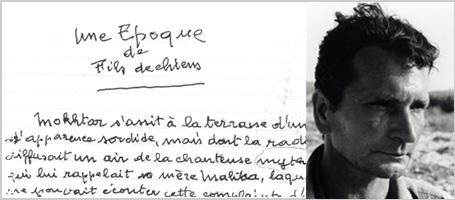 une Epoque
de
Fils de chiens
Mokhtar s'assit à la terrasse d'un
d'apparence sordide, mais dont la rad
diffusait un air de la chanteuse myste
qui lui rappelait sa mère Malika, laqu
ne pouvait écouter cette complainte d'